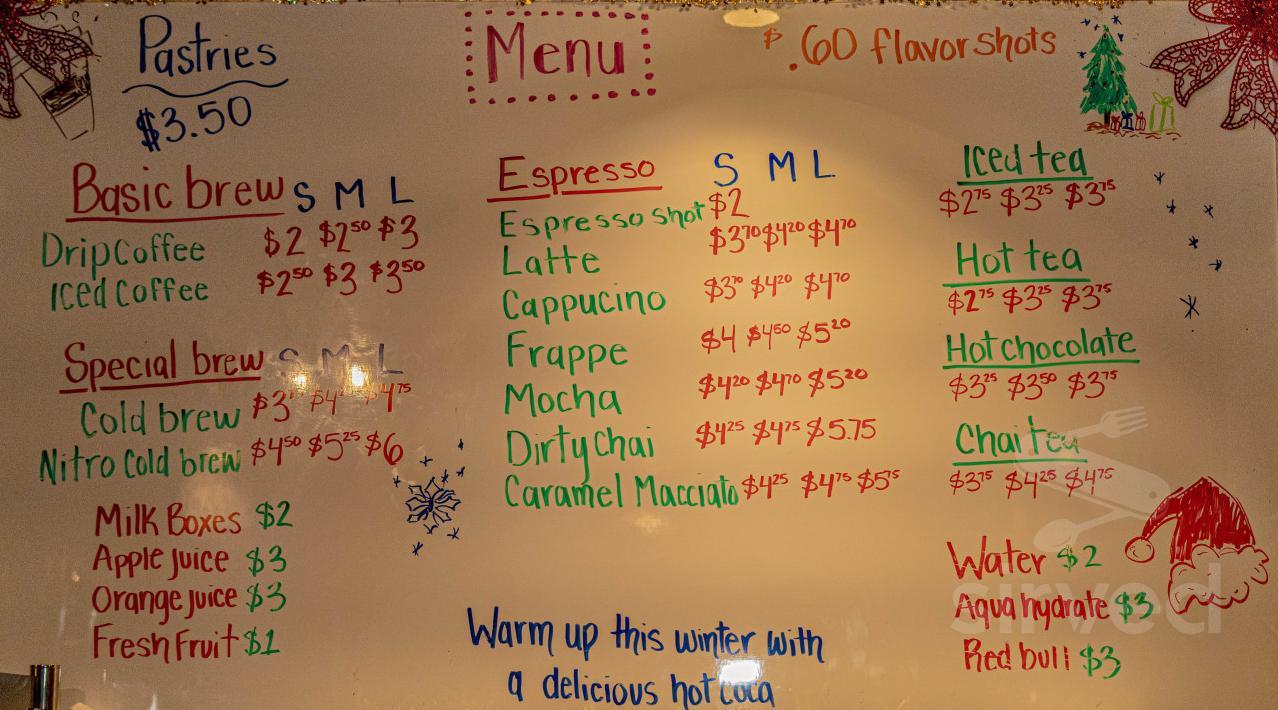 Pastries
$3.50
Menu
$.60 flavor shots
Basic brew S M L
Drip Coffee $2 $2.50 $3
Iced Coffee $2.50 $3 $3.50
Special brew S M L
Cold brew $3 $4 $4.75
Nitro Cold brew $4.50 $5.25 $6
Milk Boxes $2
Apple juice $3
Orange juice $3
Fresh Fruit $1
Espresso S M L
Espresso shot $2
Latte $3.70 $4.20 $4.70
Cappucino $3.70 $4.20 $4.70
Frappe $4 $4.50 $5.20
Mocha $4.20 $4.70 $5.20
Dirty Chai $4.25 $4.75 $5.75
Caramel Macciato $4.25 $4.75 $5.75
Warm up this winter with
a delicious hot coca
Iced tea
$2.75 $3.25 $3.75
Hot tea
$2.75 $3.25 $3.75
Hot chocolate
$3.25 $3.50 $3.75
Chai tea
$3.75 $4.25 $4.75
Water $2
Aqua hydrate $3
Red bull $3
sirved